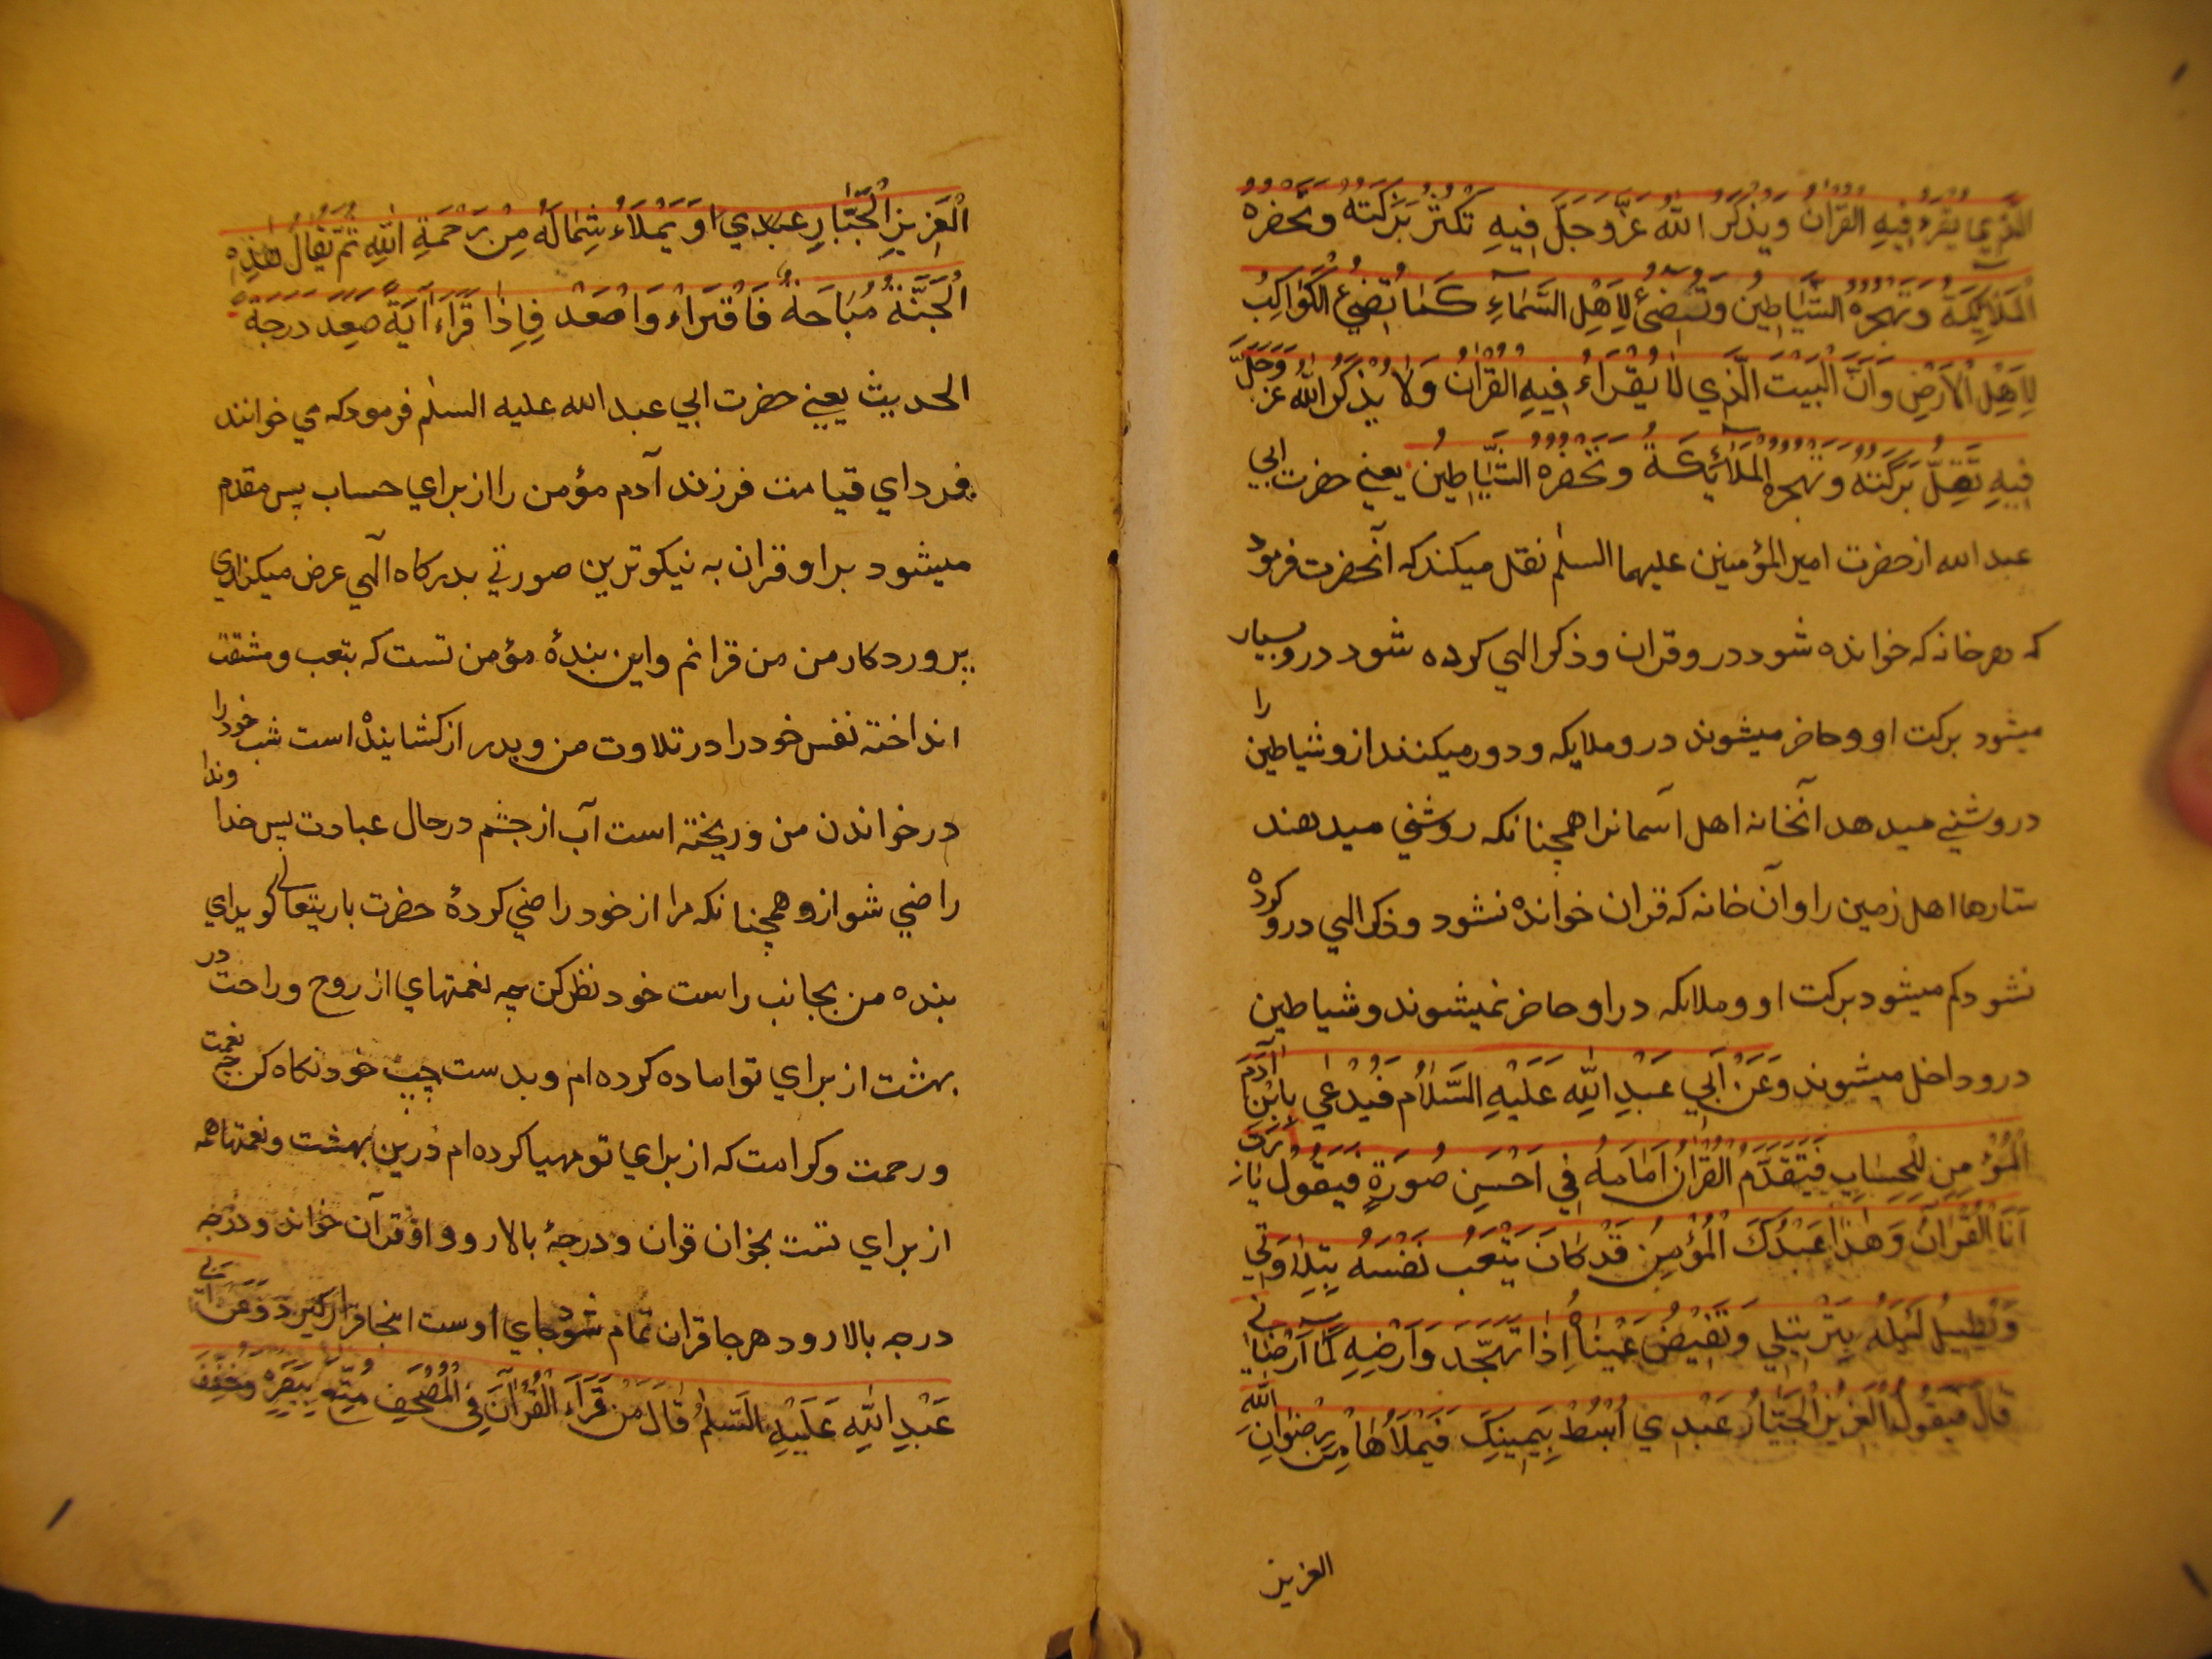 الَّذِي يُقْرَءُ فِيهِ الْقُرْاٰنُ وَيُذْكَرُ اللّٰهُ عَزَّوَجَلَّ فِيهِ تَكْثُرُ بَرَكَتُهُ وَتَحْضُرُهُ
الْمَلٰآئِكَةُ وَتَهْجُرُهُ الشَّيَاطِينُ وَتُضِئُ لِاَهْلِ السَّمٰآءِ كَمٰا تُضِئُ الْكَوٰاكِبُ
لِاَهْلِ الْاَرْضِ وَاَنَّ الْبَيْتَ الَّذِي لٰا يُقْرَاءُ فِيهِ الْقُرْاٰنُ وَلٰا يُذْكَرُ اللّٰهُ عَزَّ وَجَلَّ
فِيهِ تَقِلُّ بَرَكَتُهُ وَتَهْجُرُهُ الْمَلٰآئِكَةُ وَتَحْضُرُهُ الشَّيٰاطِينُ يعني حضرت ابي
عبد الله از حضرت امير المؤمنين عليهما السلٰم نقل ميكند كه آنحضرت فرمود
كه هر خانه كه خوانده شود در و قران و ذكر الهي كرده شود در و بسيار
ميشود بركت او و حاضر ميشوند در و ملايكه و دور ميكنند از و شياطين را
در وشني ميدهد آنخانه اهل آسمانرا همچنانكه روشني ميدهند
ستارها اهل زمين را و آن خانه كه قران خوانده نشود و ذكر الهي در و كرده
نشود كم ميشود بركت او و ملائكه در او حاضر نميشوند و شياطين
در و داخل ميشوند وَعَنْ اَبِي عَبْدِ اللّٰهِ عَلَيْهِ السَّلٰامُ فَيُدْعٰي بِاِبْنِ آدَمَ
الْمُؤْمِنِ لِلْحِسٰابِ فَيَتَقَدَّمُ الْقُرْاٰنُ اَمٰامَهُ فِي اَحْسَنِ صُورَةٍ فَيَقُولُ يٰارَبِّ
اَنَا الْقُرْاٰنُ وَهٰذٰا عَبْدُكَ الْمُؤْمِنُ قَدْ كٰانَ يُتْعِبُ نَفْسَهُ بِتِلٰاوَتِي
وَيُطِيلُ لَيْلَهُ بِتَرْتِيلِي وَتَفِيضُ عَيْنٰاهُ اِذٰا تَهَجَّدَ وَاَرْضِهِ كَمٰا اَرْضٰانِي
قٰالَ فَيَقُولُ الْعَزِيزُ الْجَبَّارُ عَبْدِي اُبْسُطْ بِيَمِينِكَ فَيَمْلَاُهٰا مِنْ رِضْوٰانِ اللّٰهِ
العزيز
الْعَزِيزِ الْجَبَّارِ عَبْدِي وَيَمْلَاءُ شِمٰالَهُ مِنْ رَحْمَةِ اللّٰهِ ثُمَّ يُقٰالُ هٰذِهِ
الْجَنَّةُ مُبٰاحَةٌ فَاقْرَاءْ وَاصْعَدْ فَاِذٰا قَرَاءَ اٰيَةً صَعِدَ دَرَجَةً
الحديث يعني حضرت ابي عبد الله عليه السلٰم فرمود كه مي خوانند
فرداي قيامت فرزند آدم مؤمن را از براي حساب پس مقدم
ميشود بر او قران به نيكوترين صورتي بدركاه الٓهي عرض ميكند اي
پروردكار من من قرانم و اين بندهٔ مؤمن تست كه بتعب و مشقت
انداخته نفس خود را در تلاوت من و بدراز كشانيده است شب خود را
در خواندن من و ريخته است آب از چشم در حال عبادت پس خداوندا
راضي شو ازو همچنانكه مرا از خود راضي كردهٔ حضرت باريتعالي كويد اي
بنده من بجانب راست خود نظر كن چه نعمتهاي از روح و راحت در
بهشت از براي تو اماده كرده ام و بدست چپ خود نكاه كن چه نعمت
و رحمت و كرامت كه از براي تو مهيا كرده ام درين بهشت و نعمتها همه
از براي تست بخوان قران و درجهٔ بالا رو و او قرآن خواند و درجه
درجه بالا رود هر جا قران تمام شود جاي اوست انجا قرار كيرد وَعَنْ اَبِي
عَبْدِ اللّٰهِ عَلَيْهِ السَّلٰمُ قٰالَ مَنْ قَرَاَءَ الْقُرْآنَ فِي الْمُصْحَفِ مُتِّعَ بِبَصَرِهِ وَخُفِّفَ